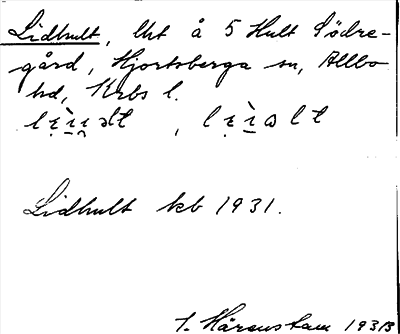 Lidhult, lht å 5 Hult Södre-
gård, Hjortsberga sn, Allbo
hd, Krbs l.
Lidhult kb 1931.
I. Härenstam 1933